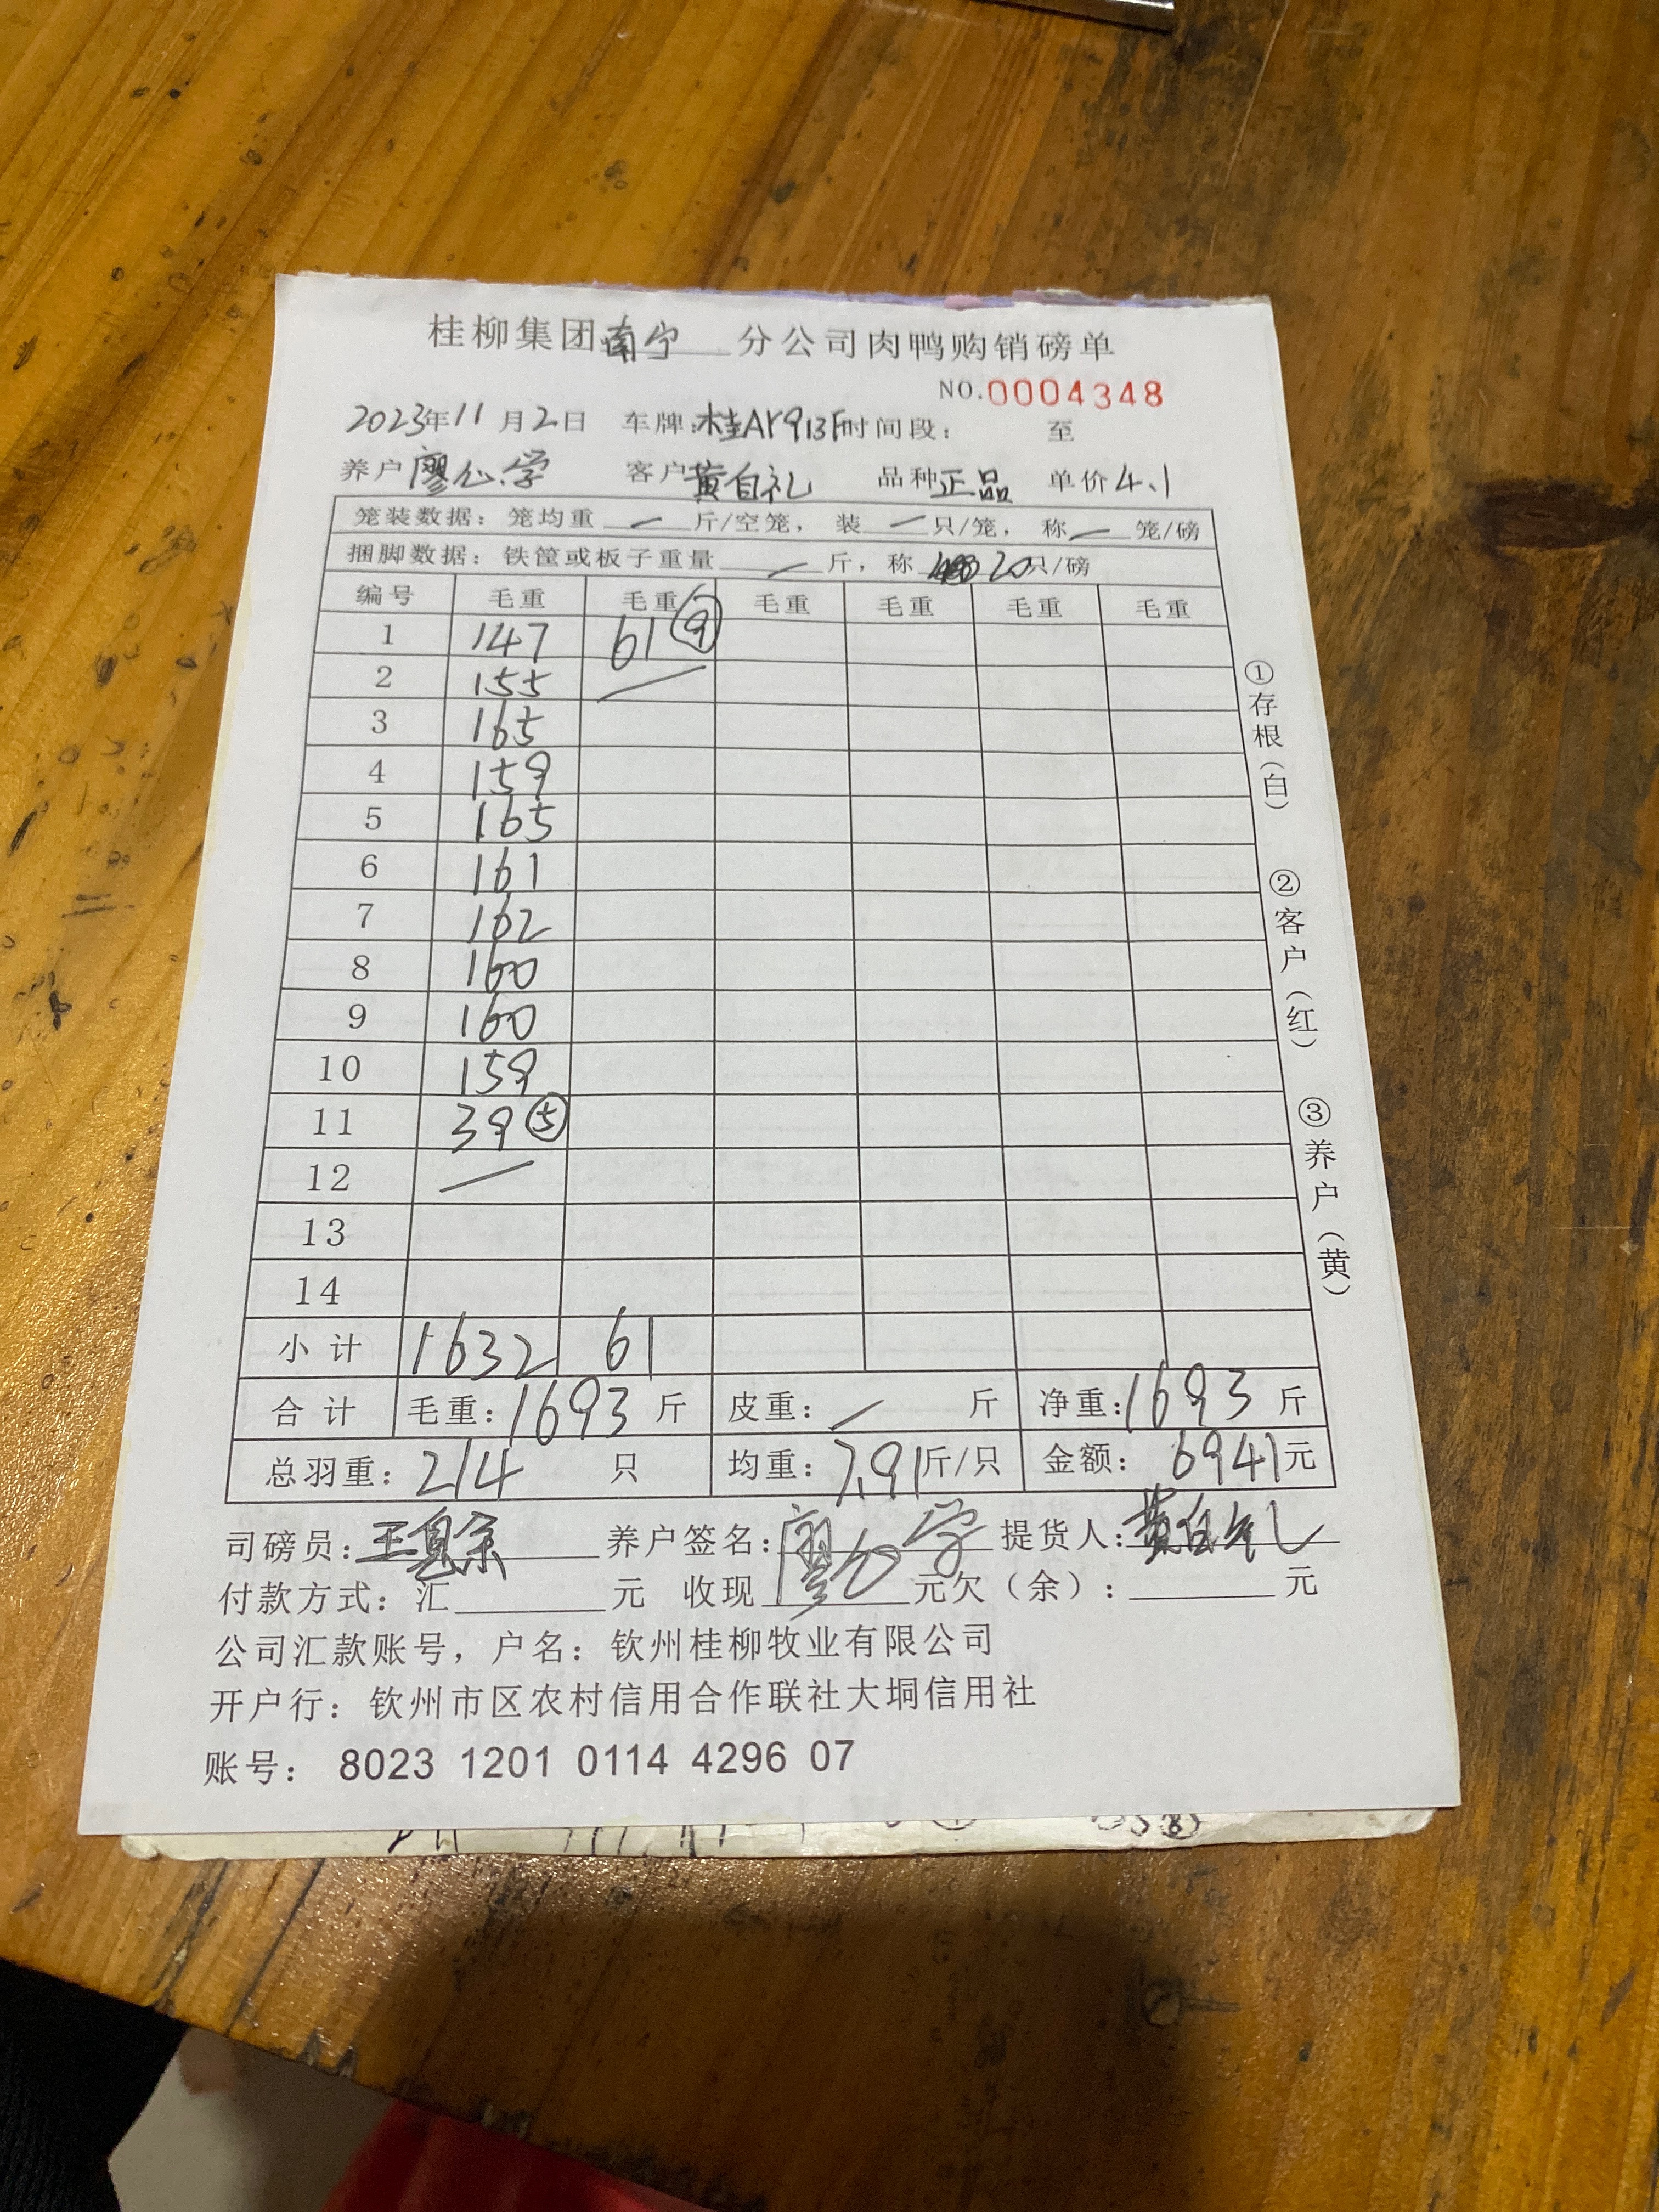 桂柳集团南宁 分公司肉鸭购销磅单
NO.0004348
2023年11月2日 车牌:桂AY913F时间段: 至
养户廖心学 客户黄自礼 品种正品 单价4.1
笼装数据:笼均重 — 斤/空笼, 装 — 只/笼, 称 — 笼/磅
捆脚数据:铁筐或板子重量 — 斤,称 20只/磅
编号 毛重 毛重 毛重 毛重 毛重 毛重
1 147 61 ⑨
2 155 —
3 165
4 159
5 165
6 161
7 162
8 160
9 160
10 159
11 39 ⑤
12 —
13
14
小计 1632 61
合计 毛重:1693 斤 皮重: — 斤 净重:1693 斤
总羽重:214 只 均重:7.91斤/只 金额: 6941元
司磅员: 养户签名:廖心学 提货人:黄自礼
付款方式:汇 元 收现 元欠(余): 元
公司汇款账号,户名:钦州桂柳牧业有限公司
开户行:钦州市区农村信用合作联社大垌信用社
账号: 8023 1201 0114 4296 07
①存根(白) ②客户(红) ③养户(黄)